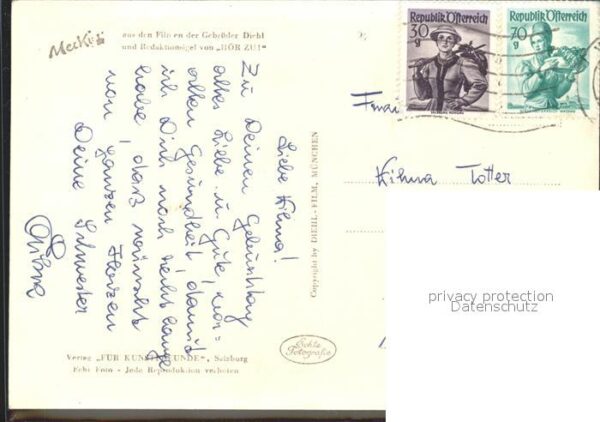 Mecki
aus den Filmen der Gebrüder Diehl
und Redaktionsigel von „HÖR ZU!"
Liebe Hilma!
Zu Deinem Geburtstag
alles Liebe u. Gute, vor-
allem Gesundheit, damit
ich Dich noch recht lange
habe, das wünscht
von ganzen Herzen
Deine Schwester
Copyright by DIEHL-FILM, MÜNCHEN
Verlag „FÜR KUNSTFREUNDE", Salzburg
Echt Foto - Jede Reproduktion verboten
Echte
Fotografie
Republik Österreich
30
g
Republik Österreich
70
g
Frau
Hilma Totter
privacy protection
Datenschutz